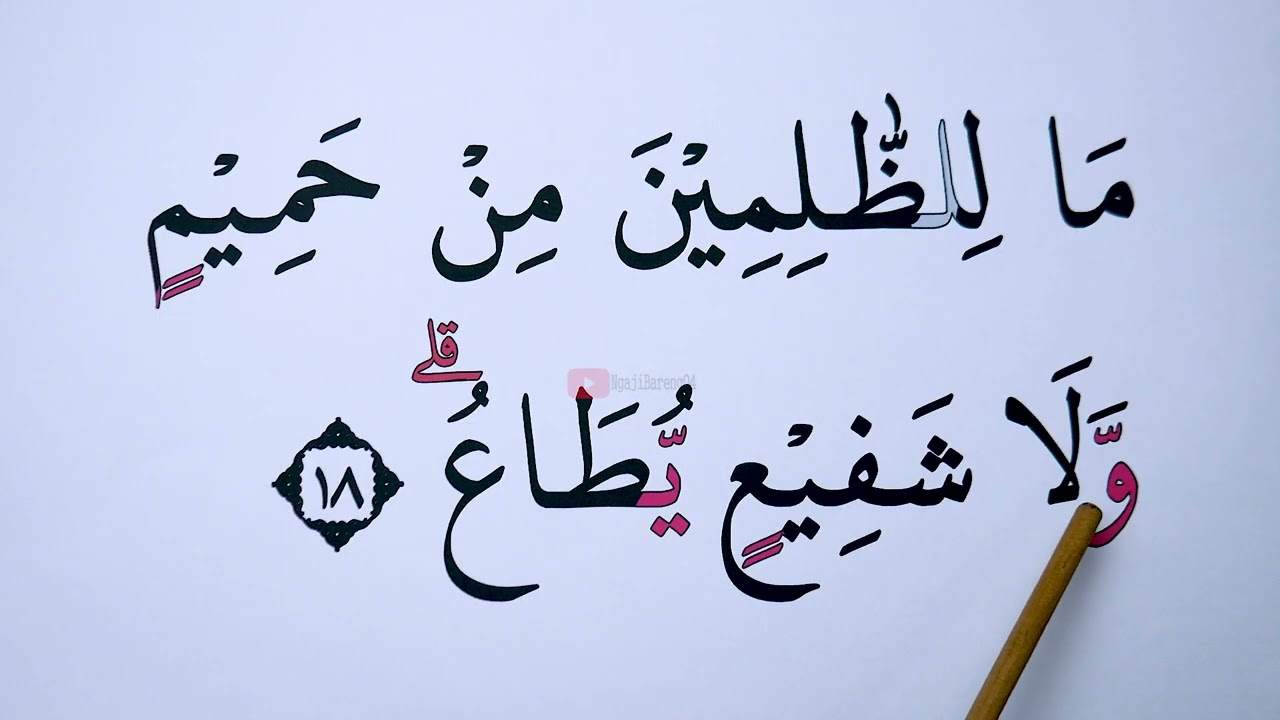 مَا لِلظّٰلِمِيْنَ مِنْ حَمِيْمٍ
وَّلَا شَفِيْعٍ يُّطَاعُ ۗ ١٨
NgajiBareng04